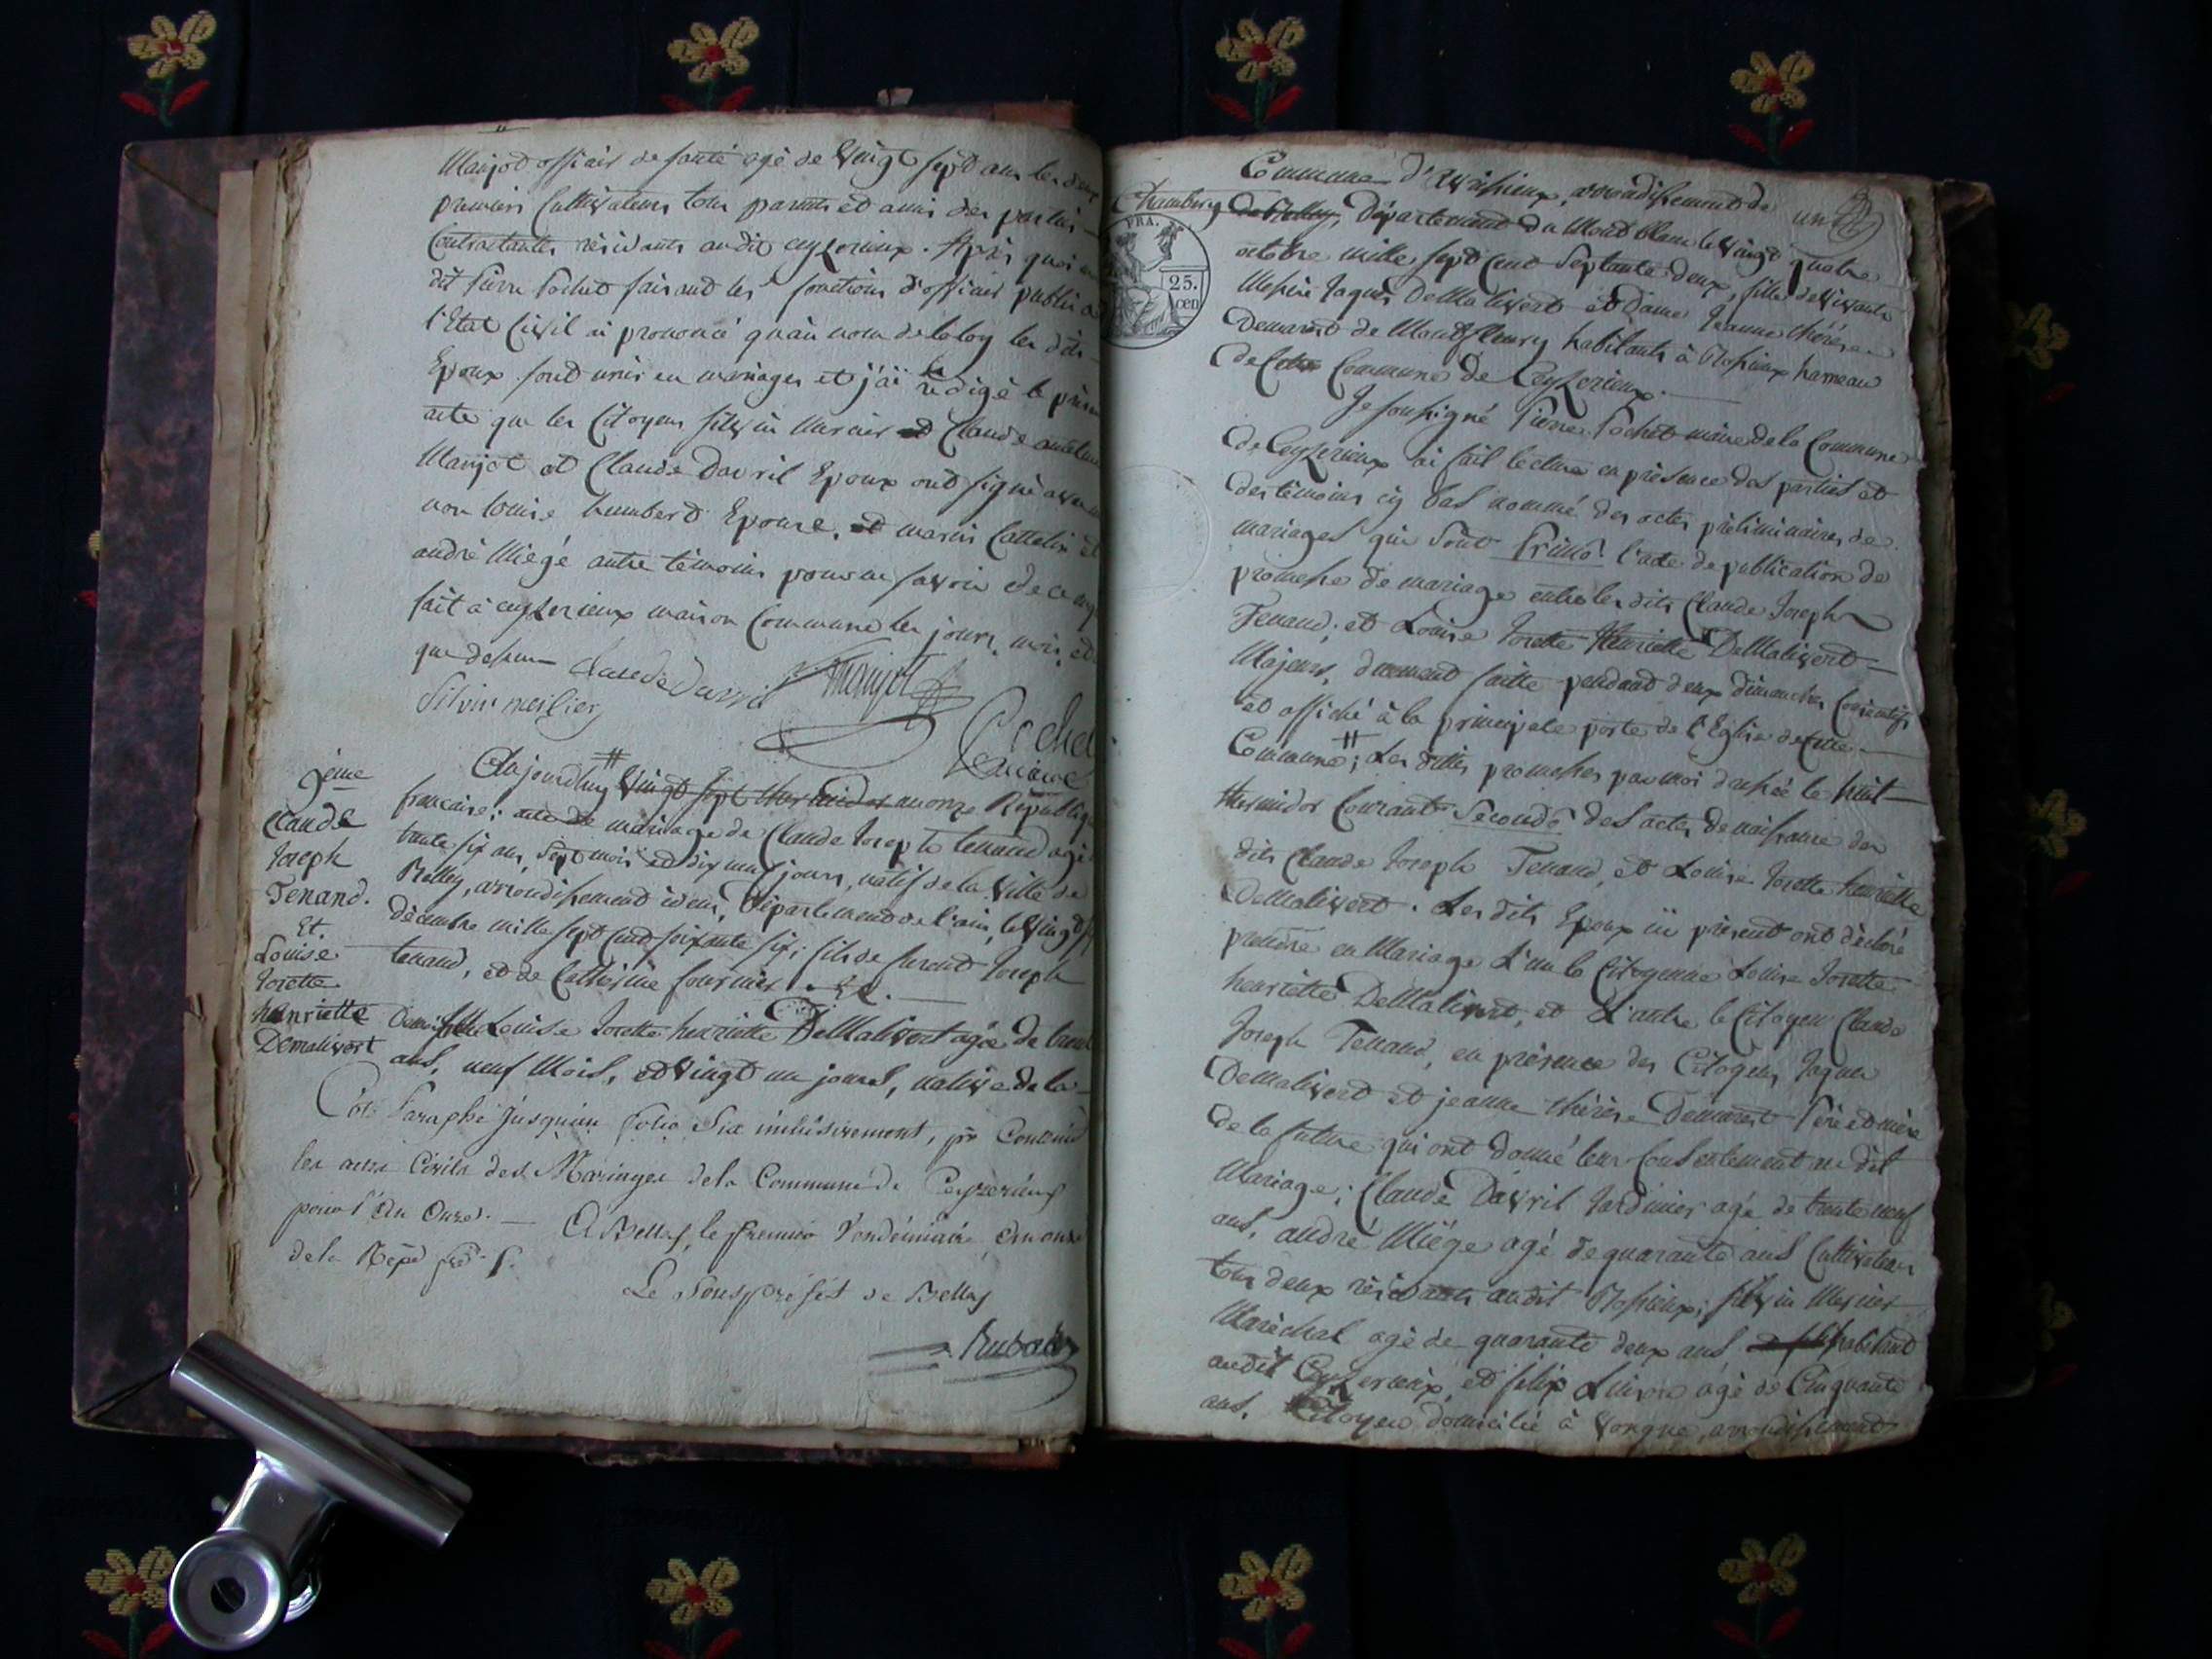 Marjot officier de santé agé de vingt sept ans les deux
premiers Cultivateurs tous parents et amis des parties
Contractantes résidants audit ceyzerieux. Après quoi
dit Pierre Pochet faisant les fonctions d'officier public de
l'Etat Civil ai prononcé qu'au nom de la loy les dits
Epoux sont unis en mariages et j'ai rédigé le
acte que les Citoyens silvin Mersier et Claude
Marjot et Claude Davril Epoux ont signé
non Louise humbert Epouse, et marin Cattelin et
andré Miége autre témoins pour ne savoir de ce
fait à ceyzerieux maison Commune les jours, mois, et
que dessus Claude Davril Marjot
Silvin mersier
Pochet
maire
9eme
Claude
Joseph
Tenand.
Et.
Louise
Josette
henriette
Demalivert
Aujourdhuy Vingt sept thermidor an onze Republique
francaise; acte de mariage de Claude Joseph tenand agé
trente six ans, sept mois et dix neuf jours, natif de la Ville de
Belley, arrondissement idem, Département de l'ain, le vingt
décembre mille sept cent soixante six; fils de furent Joseph
tenand, et de Catherine fournier
Demoiselle Louise Josette henriette DeMalivert agée de trente
ans, neuf Mois, et vingt un jours, native de la
Coté Paraphé jusqu'au folio Six inclusivement, pr Contenir
les actes Civils des Mariages de la Commune de Ceyzerieux
pour l'an Onze. — A Belley, le Premier Vendémiaire, an onze
de la Rep. fse.
Le Sous préfet de Belley
Rubat
Commune d'Avrissieux, arrondissement de
un
Chambery de Belley, Département du Mont blanc le vingt quatre
octobre mille sept cent septante deux, fille de vivants
Messire Jaques DeMalivert et Dame Jeanne thérèse
Demarest de Montfleury habitants à Rossieux hameau
de Cette Commune de Ceyzerieux.
Je soussigné Pierre Pochet maire de la Commune
de Ceyzerieux ai fait lecture en présence des parties et
des témoins cy bas nommé des actes préliminaires de
mariages qui sont Primo l'acte de publication de
promesse de mariage entre les dits Claude Joseph
Tenand; et Louise Josette Henriette DeMalivert
Majeurs, duement faitte pendant deux dimanches
et affiché à la principale porte de l'Eglise de Cette
Commune; Les dittes promesses par moi dressée le huit
thermidor Courant Secondo des actes de naissance des
dits Claude Joseph Tenand, et Louise Josette henriette
DeMalivert. Les dits Epoux ici présent ont déclaré
prendre en Mariage L'un la Citoyenne Louise Josette
henriette DeMalivert, et L'autre le Citoyen Claude
Joseph Tenand, en présence des Citoyens Jaques
Demalivert et jeanne thérèse Demarest Père et mère
de la future qui ont donné leur Consentement au dit
Mariage; Claude Davril Jardinier agé de trente neuf
ans, andré Miége agé de quarante ans Cultivateurs
tous deux résidants audit Rossieux; silvin Mersier
Maréchal agé de quarante deux ans habitant
audit Ceyzerieux, et felix agé de Cinquante
ans, Citoyen domicilié à Vongne, arrondissement
FRA.
25.
cen